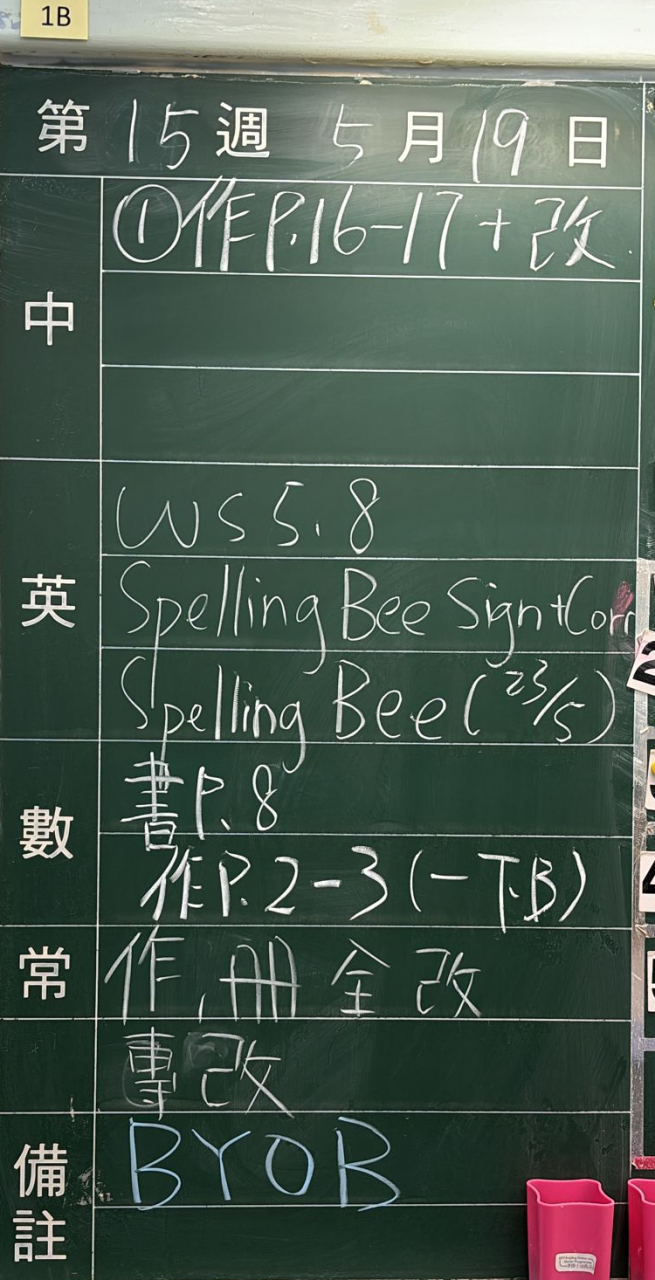 1B
第 15 週 5 月 19 日
中
①作P.16-17 + 改
英
WS 5.8
Spelling Bee Sign+Corr
Spelling Bee (23/5)
數
書P.8
作P.2-3 (一下B)
常
作,冊全改
專改
備註
BYOB